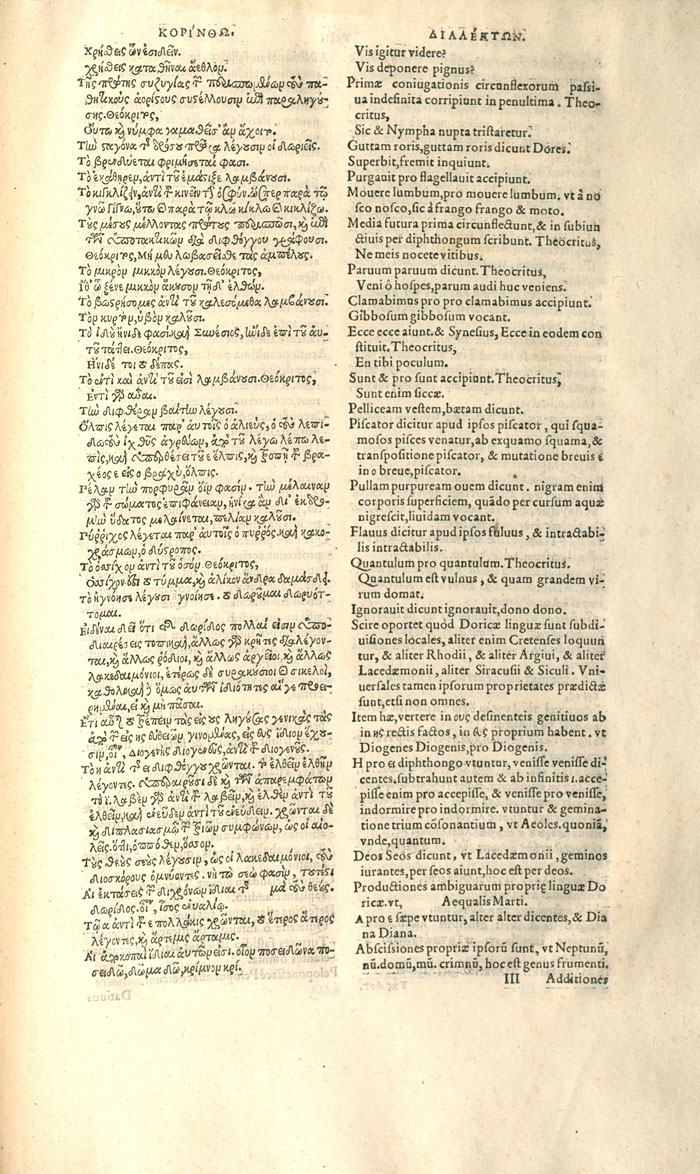 ΚΟΡΊΝΘΟΥ.
χρῄσδεις ὦν ἐσιδεῖν.
χρῄσδεις καταθεῖναι ἄεθλον.
Τῆς πρώτης συζυγίας τῶν περισπωμένων τοὺς πα-
θητικοὺς ἀορίστους συστέλλουσιν ἐπὶ παραληγού-
σης. Θεόκριτος,
Οὕτω καὶ νύμφα γαμεθεῖσ' ἂν ἄχοιτ'.
Τὴν σταγόνα τοῦ δρόσου λέγουσιν οἱ δωριεῖς.
Τὸ βρενθύεται φριμάσσεται φασι.
Τὸ ἐκάθηρεν, ἀντὶ τοῦ ἐμάστιξε λαμβάνουσι.
Θεόκριτος, Μή μευ λωβασεῖσθε τὰς ἀμπέλους.
Τὸ μικρὸν μικκὸν λέγουσι. Θεόκριτος,
ἴθ' ὦ ξένε μικκὸν ἄκουσον τῇδ' ἐλθών.
Τὸ βωσησόμες ἀντὶ τοῦ καλεσόμεθα λαμβάνουσι.
Τὸν κυρτὸν, ὑβὸν καλοῦσι.
Τὸ ἰδοὺ ἠνίδε φασὶ. καὶ Συνέσιος, ἠνίδε ἐπὶ τοῦ αὐ-
τοῦ τάττει. Θεόκριτος,
Ἠνίδε τοι τὸ δέπας.
Τὸ ἐντὶ καὶ ἀντὶ τοῦ εἰσὶ λαμβάνουσι. Θεόκριτος,
Ἐντὶ γὰρ αὖαι.
Τὴν διφθέραν βαίταν λέγουσι.
Ὄλπις λέγεται παρ' αὐτοῖς ὁ ἁλιεύς, ὁ τοὺς λεπι-
δωτοὺς ἰχθῦς ἀγρεύων, ἀπὸ τοῦ λέπω λε-
πίς, καὶ ὑπερθέσει τοῦ ε ἔλπις, καὶ τροπῇ τοῦ βρα-
χέος ε εἰς ο βραχὺ, ὄλπις.
Πέλαν τὴν πορφυρᾶν ὄϊν φασὶν. τὴν μέλαιναν
γὰρ τοῦ σώματος ἐπιφάνειαν, ἡνίκα ἂν δι' ἐκδρο-
μὴν ὕδατος μελαίνεται, πελίαν καλοῦσι.
Πύρριχος λέγεται παρ' αὐτοῖς ὁ πυρρός, καὶ κακο-
χράσμων, ὁ δύστροπος.
Τὸ ὁσσίχον ἀντὶ τοῦ ὅσον. Θεόκριτος,
Ὁσσίχον ἐστὶ τὸ τύμμα, καὶ ἁλίκον ἄνδρα δαμάσδει.
Εἰδέναι δεῖ ὅτι τῆς δωρίδος πολλαὶ εἰσὶν ὑπο-
διαιρέσεις τοπικαὶ, ἄλλως γὰρ κρῆτες διαλέγον-
ται, καὶ ἄλλως ῥόδιοι, καὶ ἄλλως ἀργεῖοι, καὶ ἄλλως
λακεδαιμόνιοι, ἑτέρως δὲ συρακούσιοι καὶ σικελοί,
καθολικαὶ δὲ ὅμως αὐτῶν ἰδιότητες αἵ γε προει-
ρημέναι, εἰ καὶ μὴ πᾶσαι.
Ἔτι αὐτῶν τὸ τρέπειν τὰς εἰς ους ληγούσας γενικὰς τὰς
ἀπὸ τῶν εἰς ης εὐθειῶν γινομένας, εἰς ευς ἴδιον ἔχου-
σιν, οἷον, Διογένης διογένευς, ἀντὶ τοῦ διογένους.
Τοὺς θεοὺς σεοὺς λέγουσιν, ὡς οἱ λακεδαιμόνιοι, τοὺς
διοσκόρους ὀμνύοντες. νὴ τὼ σεώ φασιν, τουτέστι
μὰ τοὺς θεούς.
Αἱ ἐκτάσεις τῶν διχρόνων ἴδιαι τῆς
δωρίδος. οἷον, ἶσος ἐνυαλίῳ.
Τῷ α ἀντὶ τοῦ ε πολλάκις χρῶνται, τὸ ἕτερος ἅτερος
λέγοντες, καὶ ἄρτεμις ἄρταμις.
Αἱ ἀποκοπαὶ ἴδιαι αὐτῶν εἰσι. οἷον ποσειδῶνα πο-
σειδῶ, δῶμα δῶ, κρίμνον κρῖ.
ΔΙΑΛΈΚΤΩΝ.
Vis igitur videre?
Vis deponere pignus?
Primæ coniugationis circunflexorum passi-
ua indefinita corripiunt in penultima. Theo-
critus,
Sic & Nympha nupta tristaretur.
Guttam roris, guttam roris dicunt Dores.
Superbit, fremit inquiunt.
Purgauit pro flagellauit accipiunt.
Mouere lumbum, pro mouere lumbum. vt à no
sco nosco, sic à frango frango & moto.
Media futura prima circunflectunt, & in subiun
ctiuis per diphthongum scribunt. Theocritus,
Ne meis nocete vitibus.
Paruum paruum dicunt. Theocritus,
Veni ô hospes, parum audi huc veniens.
Clamabimus pro pro clamabimus accipiunt.
Gibbosum gibbosum vocant.
Ecce ecce aiunt. & Synesius, Ecce in eodem con
stituit. Theocritus,
En tibi poculum.
Sunt & pro sunt accipiunt. Theocritus,
Sunt enim siccæ.
Pelliceam vestem, bætam dicunt.
Piscator dicitur apud ipsos piscator, qui squa-
mosos pisces venatur, ab exquamo squama, &
transpositione piscator, & mutatione breuis ε
in o breue, piscator.
Pullam purpuream ouem dicunt. nigram enim
corporis superficiem, quãdo per cursum aquæ
nigrescit, liuidam vocant.
Flauus dicitur apud ipsos fuluus, & intractabi-
lis intractabilis.
Quantulum pro quantulum. Theocritus.
Quantulum est vulnus, & quam grandem vi-
rum domat.
Ignorauit dicunt ignorauit, dono dono.
Scire oportet quòd Doricæ linguæ sunt subdi-
uisiones locales, aliter enim Cretenses loquun
tur, & aliter Rhodii, & aliter Argiui, & aliter
Lacedæmonii, aliter Siracusii & Siculi. Vni-
uersales tamen ipsorum proprietates prædictæ
sunt, etsi non omnes.
Item hæ, vertere in ους desinenteis genitiuos ab
in ης rectis factos, in ευς proprium habent. vt
Diogenes Diogenis, pro Diogenis.
H pro ει diphthongo vtuntur, venisse venisse di-
centes. subtrahunt autem & ab infinitis ι. acce-
pisse enim pro accepisse, & venisse pro venisse,
indormire pro indormire. vtuntur & gemina-
tione trium cõsonantium, vt Aeoles. quoniã,
vnde, quantum.
Deos Seos dicunt, vt Lacedæmonii, geminos
iurantes, per seos aiunt, hoc est per deos.
Productiones ambiguarum proprię linguæ Do
ricæ. vt, Aequalis Marti.
A pro ε sæpe vtuntur, alter alter dicentes, & Dia
na Diana.
Abscissiones propriæ ipsorũ sunt, vt Neptunũ,
nũ. domũ, mũ. crimnũ, hoc est genus frumenti.
III Additiones